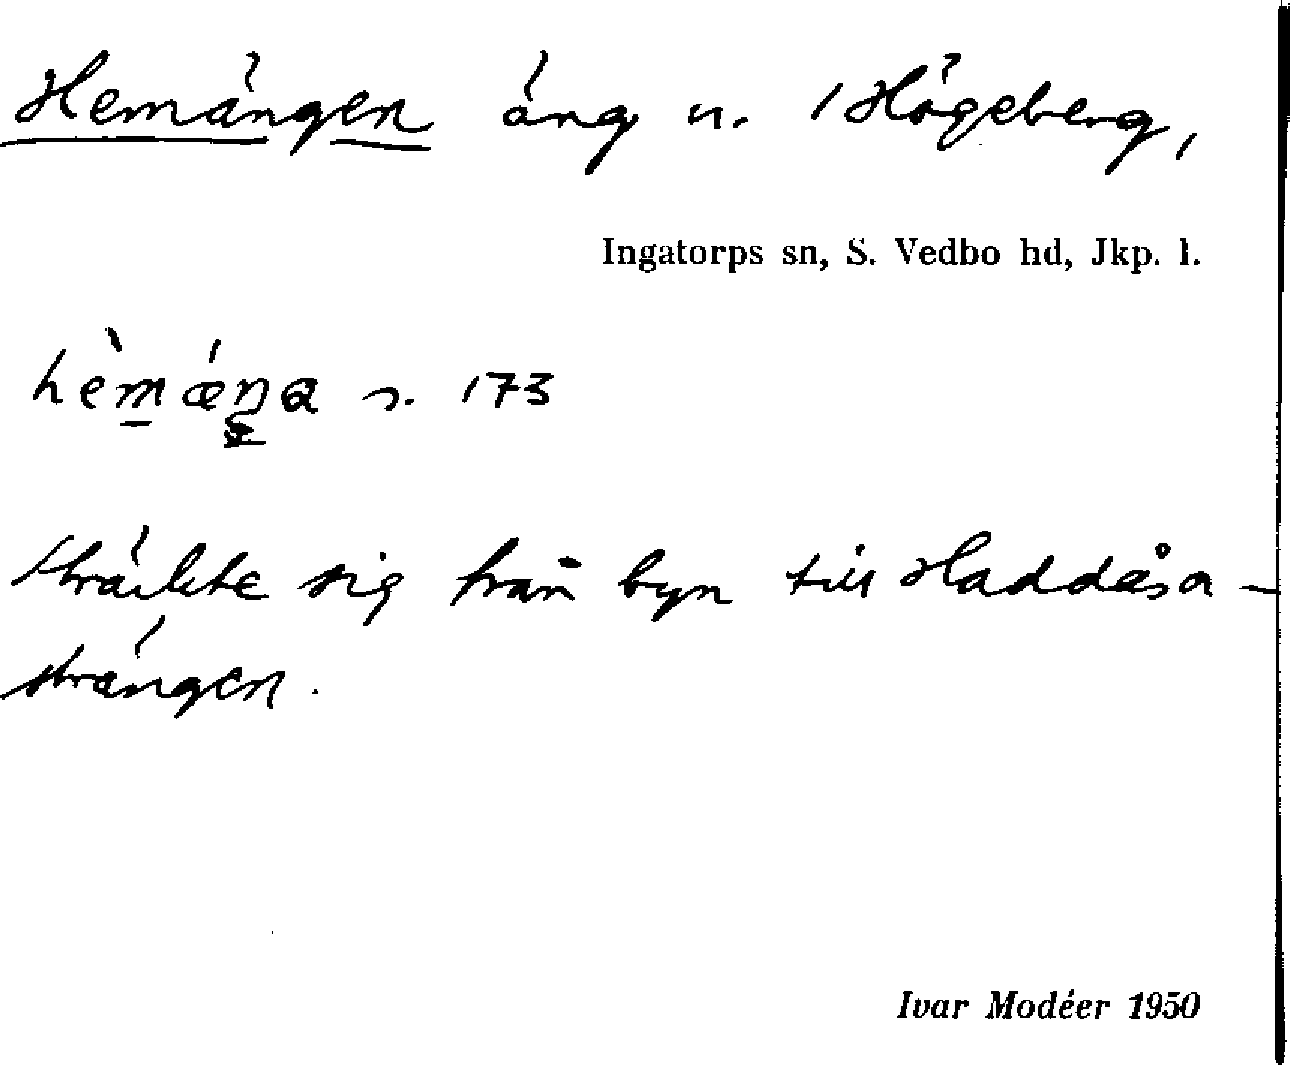 Hemängen äng u. Högeberg,
Ingatorps sn, S. Vedbo hd, Jkp. l.
hèmǽŋa s. 173
Sträckte sig från byn till Haddåsa-
strängen.
Ivar Modéer 1950